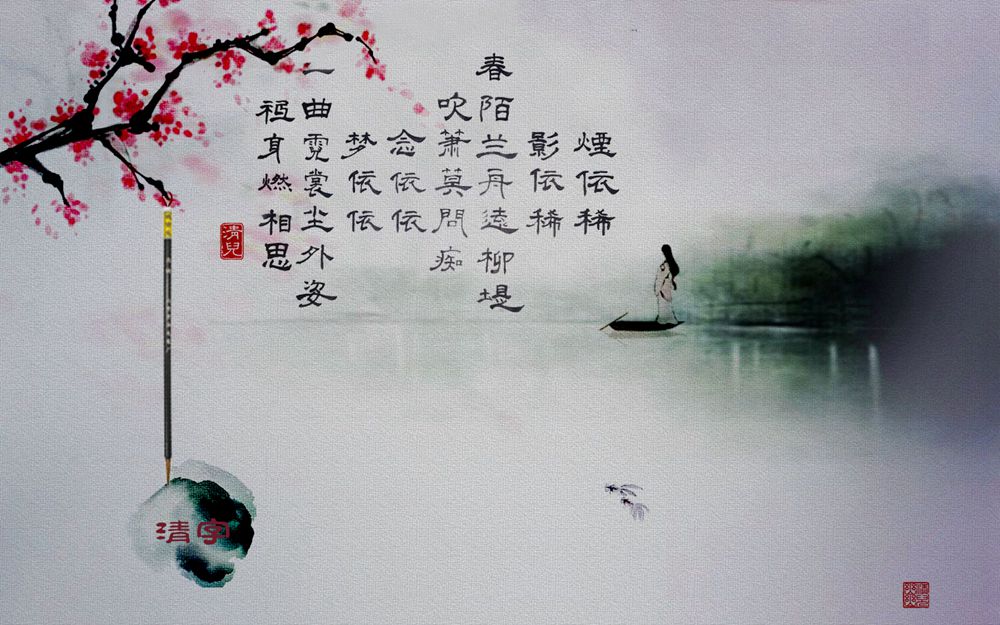 煙依稀
影依稀
春陌兰舟遠柳堤
吹簫莫問痴
念依依
梦依依
一曲霓裳尘外姿
祗身燃相思
清兒
清字